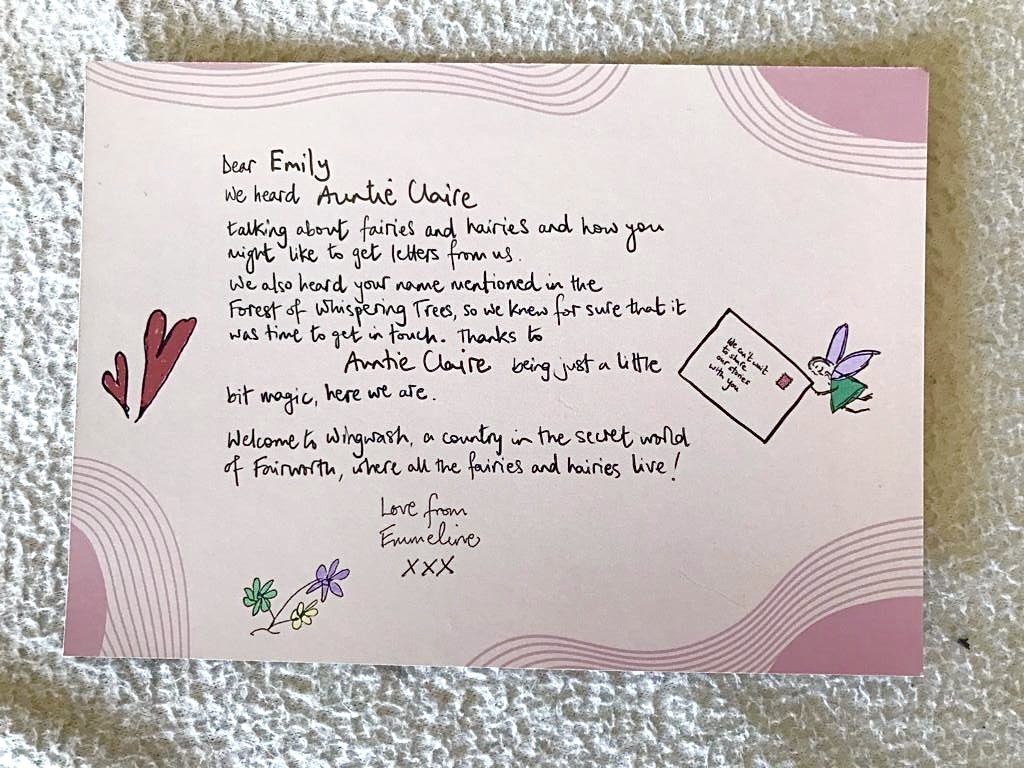 Dear Emily
We heard Auntie Claire
talking about fairies and hairies and how you
might like to get letters from us.
We also heard your name mentioned in the
Forest of Whispering Trees, so we knew for sure that it
was time to get in touch. Thanks to
Auntie Claire being just a little
bit magic, here we are.
Welcome to Wingwash, a country in the secret world
of Fairworth, where all the fairies and hairies live!
Love from
Emmeline
XXX
We can't wait
to share
our stories
with you